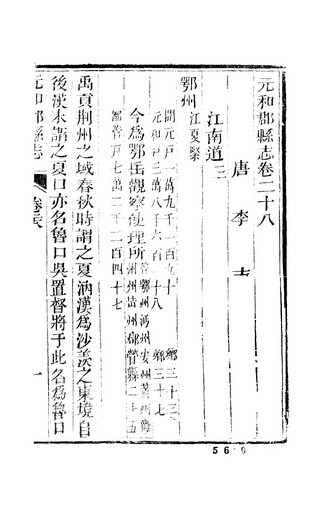 元和郡縣志卷二十八
唐 李 吉
江南道三
鄂州 江夏緊
開元戶一萬九千一百九十 鄉三十三
元和戶三萬八千六百一十八 鄉三十七
今為鄂岳觀察使理所 管鄂州沔州安州黃州蘄
州岳州 管縣二十五
都管戶七萬二千二百四十七
禹貢荆州之域春秋時謂之夏汭漢為沙羨之東境自
後漢末謂之夏口亦名魯口吳置督將于此名為魯口
元和郡縣志
一
56